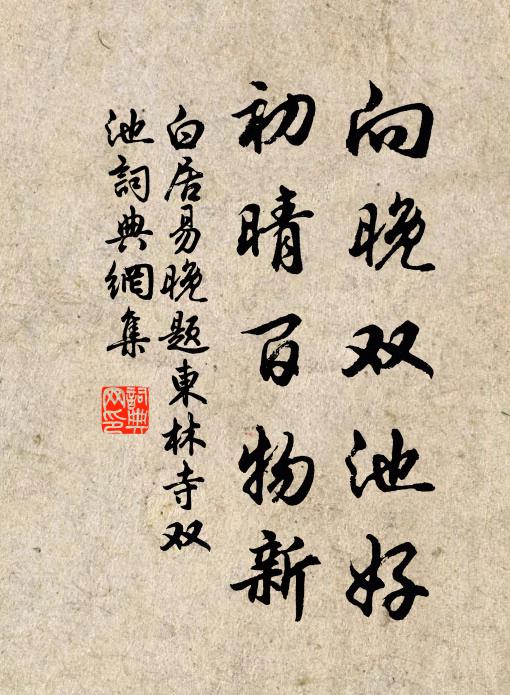 向晚双池好
初晴百物新
白居易晚题東林寺双
池詞典網集
詞典网印